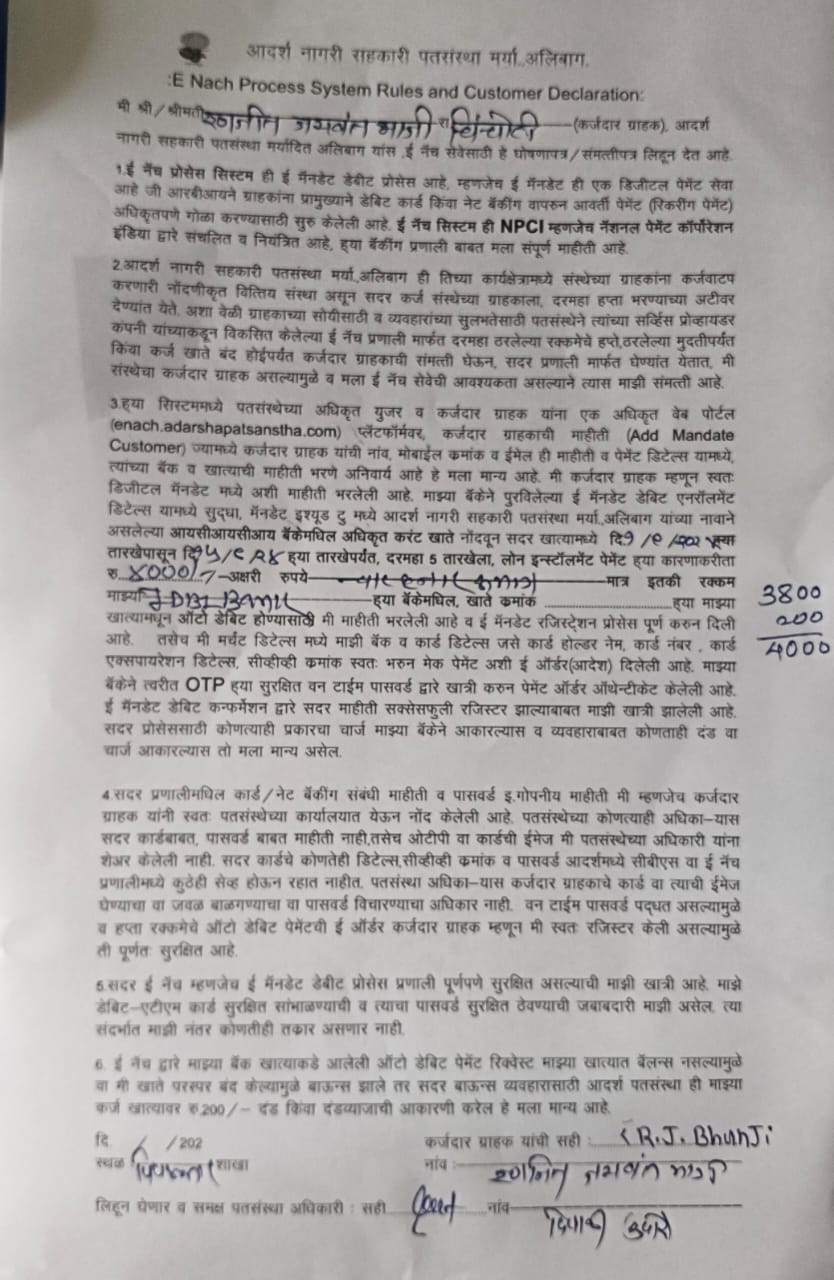 आदर्श नागरी सहकारी पतसंस्था मर्या.,अलिबाग.
:E Nach Process System Rules and Customer Declaration:
मी श्री/श्रीमती जयवंत भाजी रा चिंचोटी (कर्जदार ग्राहक), आदर्श
नागरी सहकारी पतसंस्था मर्यादित अलिबाग यांस ,ई नॅच सेवेसाठी हे घोषणापत्र/संमत्तीपत्र लिहून देत आहे.
1.ई नॅच प्रोसेस सिस्टम ही ई मॅनडेट डेबीट प्रोसेस आहे, म्हणजेच ई मॅनडेट ही एक डिजीटल पेमेंट सेवा
आहे जी आरबीआयने ग्राहकांना प्रामुख्याने डेबिट कार्ड किंवा नेट बॅकींग वापरुन आवर्ती पेमेंट (रिकरींग पेमेंट)
अधिकृतपणे गोळा करण्यासाठी सुरु केलेली आहे. ई नॅच सिस्टम ही NPCI म्हणजेच नॅशनल पेमेंट कॉर्पोरेशन
इंडिया द्वारे संचलित व नियंत्रित आहे, ह्या बॅकींग प्रणाली बाबत मला संपूर्ण माहीती आहे.
2.आदर्श नागरी सहकारी पतसंस्था मर्या.,अलिबाग ही तिच्या कार्यक्षेत्रामध्ये संस्थेच्या ग्राहकांना कर्जवाटप
करणारी नोंदणीकृत वित्तिय संस्था असून सदर कर्ज संस्थेच्या ग्राहकाला, दरमहा हप्ता भरण्याच्या अटीवर
देण्यांत येते. अशा वेळी ग्राहकाच्या सोयीसाठी व व्यवहारांच्या सुलभतेसाठी पतसंस्थेने त्यांच्या सर्व्हिस प्रोव्हायडर
कंपनी यांच्याकडून विकसित केलेल्या ई नॅच प्रणाली मार्फत दरमहा ठरलेल्या रक्कमेचे हप्ते,ठरलेल्या मुदतीपर्यत
किंवा कर्ज खाते बंद होईपर्यंत कर्जदार ग्राहकाची संमत्ती घेऊन, सदर प्रणाली मार्फत घेण्यांत येतात, मी
संस्थेचा कर्जदार ग्राहक असल्यामुळे व मला ई नॅच सेवेची आवश्यकता असल्याने त्यास माझी संमत्ती आहे.
3.ह्या सिस्टममध्ये पतसंस्थेच्या अधिकृत युजर व कर्जदार ग्राहक यांना एक अधिकृत वेब पोर्टल
(enach.adarshapatsanstha.com) प्लॅटफॉर्मवर, कर्जदार ग्राहकाची माहीती (Add Mandate
Customer) ज्यामध्ये कर्जदार ग्राहक यांची नांव, मोबाईल क्रमांक व ईमेल ही माहीती व पेमेंट डिटेल्स यामध्ये,
त्यांच्या बॅक व खात्याची माहीती भरणे अनिवार्य आहे हे मला मान्य आहे. मी कर्जदार ग्राहक म्हणून स्वतः
डिजीटल मॅनडेट मध्ये अशी माहीती भरलेली आहे. माझ्या बॅकेने पुरविलेल्या ई मॅनडेट डेबिट एनरॉलमेंट
डिटेल्स यामध्ये सुद्धा, मॅनडेट इश्यूड टु मध्ये आदर्श नागरी सहकारी पतसंस्था मर्या.,अलिबाग यांच्या नावाने
असलेल्या आयसीआयसीआय बॅकेमधिल अधिकृत करंट खाते नोंदवून सदर खात्यामध्ये दि. ह्या
तारखेपासून दि ह्या तारखेपर्यंत, दरमहा 5 तारखेला, लोन इन्स्टॉलमेंट पेमेंट ह्या कारणाकरीता
रु. ४०००/- अक्षरी रुपये चार हजार मात्र इतकी रक्कम
माझ्या IDBI Bank ह्या बॅकेमधिल, खाते क्रमांक ......... ह्या माझ्या
खात्यामधून ऑटो डेबिट होण्यासाठी मी माहीती भरलेली आहे व ई मॅनडेट रजिस्ट्रेशन प्रोसेस पूर्ण करुन दिली
आहे. तसेच मी मर्चंट डिटेल्स मध्ये माझी बॅक व कार्ड डिटेल्स जसे कार्ड होल्डर नेम, कार्ड नंबर , कार्ड
एक्सपायरेशन डिटेल्स, सीव्हीव्ही क्रमांक स्वतः भरुन मेक पेमेंट अशी ई ऑर्डर(आदेश) दिलेली आहे. माझ्या
बॅकेने त्वरीत OTP ह्या सुरक्षित वन टाईम पासवर्ड द्वारे खात्री करुन पेमेंट ऑर्डर ऑथेन्टीकेट केलेली आहे.
ई मॅनडेट डेबिट कन्फर्मेशन द्वारे सदर माहीती सक्सेसफुली रजिस्टर झाल्याबाबत माझी खात्री झालेली आहे.
सदर प्रोसेससाठी कोणत्याही प्रकारचा चार्ज माझ्या बॅकेने आकारल्यास व व्यवहाराबाबत कोणताही दंड वा
चार्ज आकारल्यास तो मला मान्य असेल.
3800
200
4000
4.सदर प्रणालीमधिल कार्ड/नेट बॅकींग संबंधी माहीती व पासवर्ड इ.गोपनीय माहीती मी म्हणजेच कर्जदार
ग्राहक यांनी स्वतः पतसंस्थेच्या कार्यालयात येऊन नोंद केलेली आहे. पतसंस्थेच्या कोणत्याही अधिका–यास
सदर कार्डबाबत, पासवर्ड बाबत माहीती नाही,तसेच ओटीपी वा कार्डची ईमेज मी पतसंस्थेच्या अधिकारी यांना
शेअर केलेली नाही. सदर कार्डचे कोणतेही डिटेल्स,सीव्हीव्ही क्रमांक व पासवर्ड आदर्शमध्ये सीबीएस वा ई नॅच
प्रणालीमध्ये कुठेही सेव्ह होऊन रहात नाहीत. पतसंस्था अधिका–यास कर्जदार ग्राहकाचे कार्ड वा त्याची ईमेज
घेण्याचा वा जवळ बाळगण्याचा वा पासवर्ड विचारण्याचा अधिकार नाही. वन टाईम पासवर्ड पद्धत असल्यामुळे
व हप्ता रक्कमेचे ऑटो डेबिट पेमेंटची ई ऑर्डर कर्जदार ग्राहक म्हणून मी स्वतः रजिस्टर केली असल्यामुळे
ती पूर्णतः सुरक्षित आहे.
5.सदर ई नॅच म्हणजेच ई मॅनडेट डेबीट प्रोसेस प्रणाली पूर्णपणे सुरक्षित असल्याची माझी खात्री आहे. माझे
डेबिट–एटीएम कार्ड सुरक्षित सांभाळण्याची व त्याचा पासवर्ड सुरक्षित ठेवण्याची जबाबदारी माझी असेल. त्या
संदर्भात माझी नंतर कोणतीही तक्रार असणार नाही.
6. ई नॅच द्वारे माझ्या बॅक खात्याकडे आलेली ऑटो डेबिट पेमेंट रिक्वेस्ट माझ्या खात्यात बॅलन्स नसल्यामुळे
वा मी खाते परस्पर बंद केल्यामुळे बाऊन्स झाले तर सदर बाऊन्स व्यवहारासाठी आदर्श पतसंस्था ही माझ्या
कर्ज खात्यावर रु.200/– दंड किंवा दंडव्याजाची आकारणी करेल हे मला मान्य आहे.
दि / /202 कर्जदार ग्राहक यांची सही : R.J. Bhunji
स्थळ शाखा नांव :- जयवंत
लिहून घेणार व समक्ष पतसंस्था अधिकारी : सही नांव